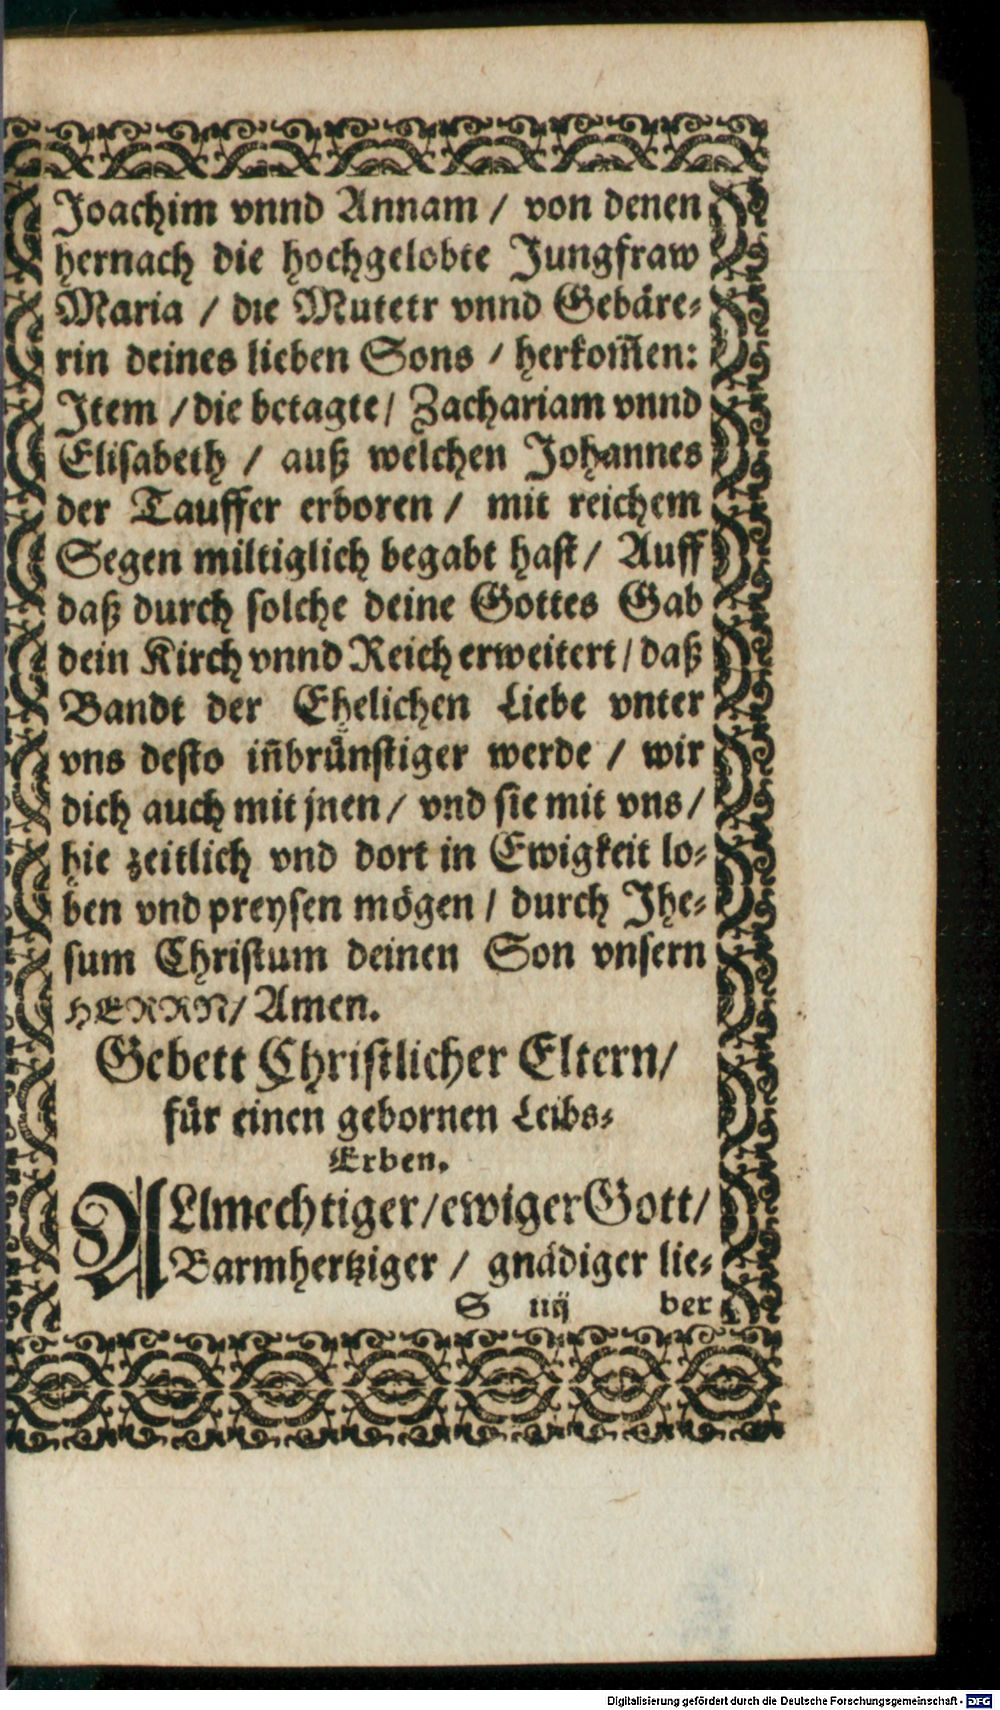 Joachim vnnd Annam / von denen
hernach die hochgelobte Jungfraw
Maria / die Mutetr vnnd Gebäre⸗
rin deines lieben Sons / herkom̃en:
Item / die betagte / Zachariam vnnd
Elisabeth / auß welchen Johannes
der Tauffer erboren / mit reichem
Segen miltiglich begabt hast / Auff
daß durch solche deine Gottes Gab
dein Kirch vnnd Reich erweitert / daß
Bandt der Ehelichen Liebe vnter
vns desto iñbrünstiger werde / wir
dich auch mit jnen / vnd sie mit vns /
hie zeitlich vnd dort in Ewigkeit lo⸗
ben vnd preysen mögen / durch Jhe⸗
sum Christum deinen Son vnsern
HERRN / Amen.
Gebett Christlicher Eltern /
für einen gebornen Leibs⸗
Erben.
ALlmechtiger / ewiger Gott /
Barmhertziger / gnädiger lie⸗
S iiij ber
Digitalisierung gefördert durch die Deutsche Forschungsgemeinschaft - DFG